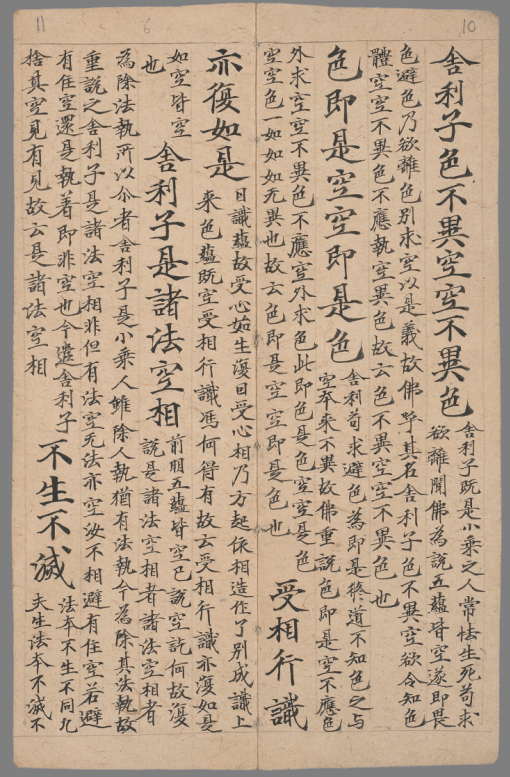 10
舍利子色不異空空不異色
舍利子既是小乘之人常怯生死苟求
欲離聞佛為說五蘊皆空遂即畏
色避色乃欲離色別求空以是義故佛呼其名舍利子色不異空欲令知色
體空空不異色不應執空異色故云色不異空空不異色也
色即是空空即是色
舍利苟求避色為即是修道不知色之与
空本來不異故佛重說色即是空不應色
外求空空不異色不應空外求色此即色是色空空是色
空空色一如如如无異也故云色即是空空即是色也
受相行識
6
11
亦復如是
曰識蘊故受心如生復曰受心相乃方起依相造作了別成識上
來色蘊既空受相行識馮何得有故云受相行識亦復如是
如空皆空
也
舍利子是諸法空相
前明五蘊皆空已說空訖何故復
說是諸法空相者諸法空相者
為除法執所以尒者舍利子是小乘人雖除人執猶有法執今為除其法執故
重說之舍利子是諸法空相非但有法空无法亦空汝不相避有住空若避
有住空還是執著即非空也今遣舍利子
捨真空見有見故云是諸法空相
不生不滅
法本不生不同凡
夫生法本不滅不